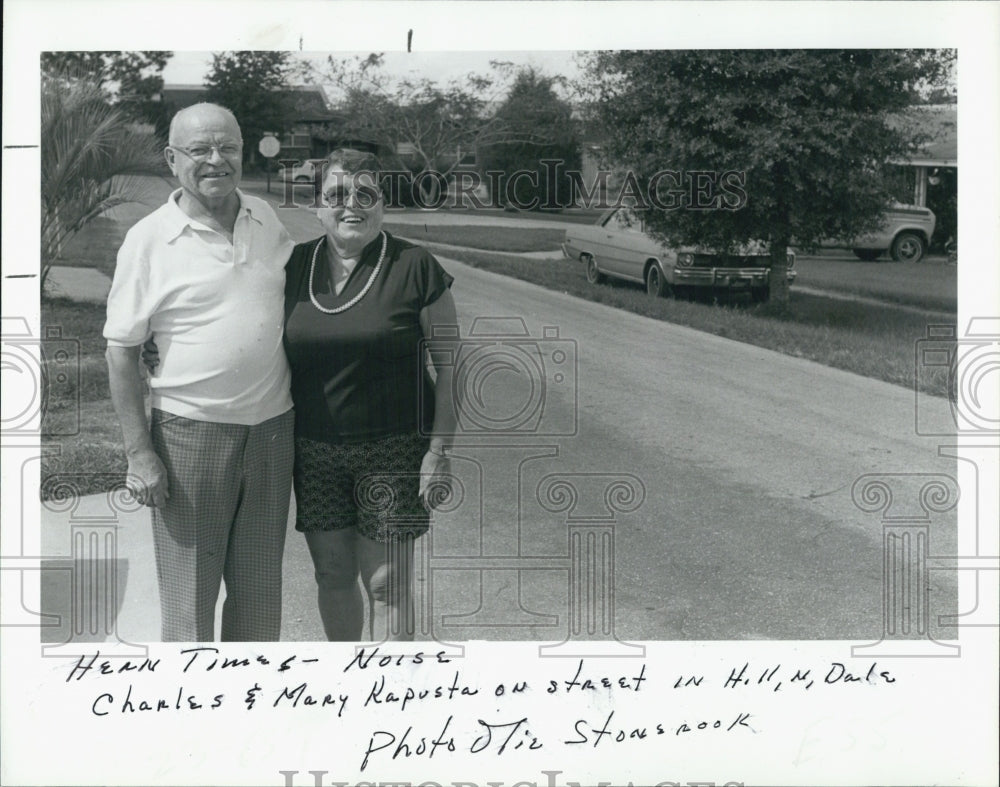 HISTORIC IMAGES
Hern Times - Noise
Charles & Mary Kapusta on street in Hill, N, Dale
Photo Stonerook
HISTORIC IMAGES